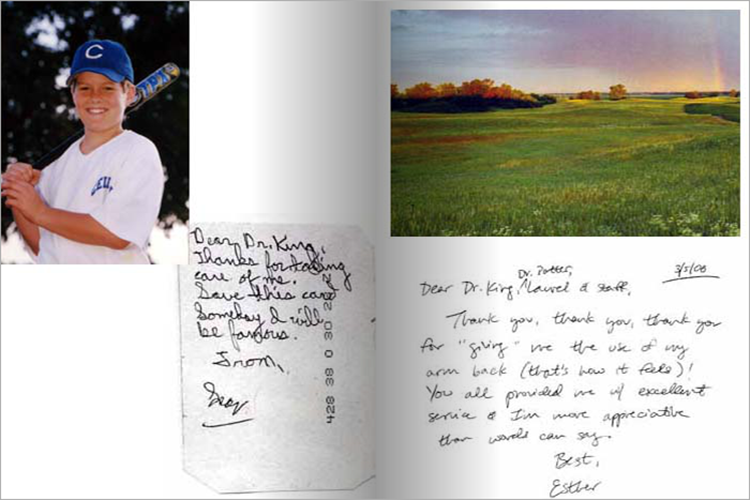 C
TPX
Dear Dr. King,
Thanks for taking
care of me.
Save this card
Someday I will
be famous.
From,
428 38 0 30 2
Dr. Potter,
Dear Dr. King, Laurel & staff,
Thank you, thank you, thank you
for "giving" me the use of my
arm back (that's how it feels)!
You all provided me w/ excellent
service & I'm more appreciative
than words can say.
Best,
Esther